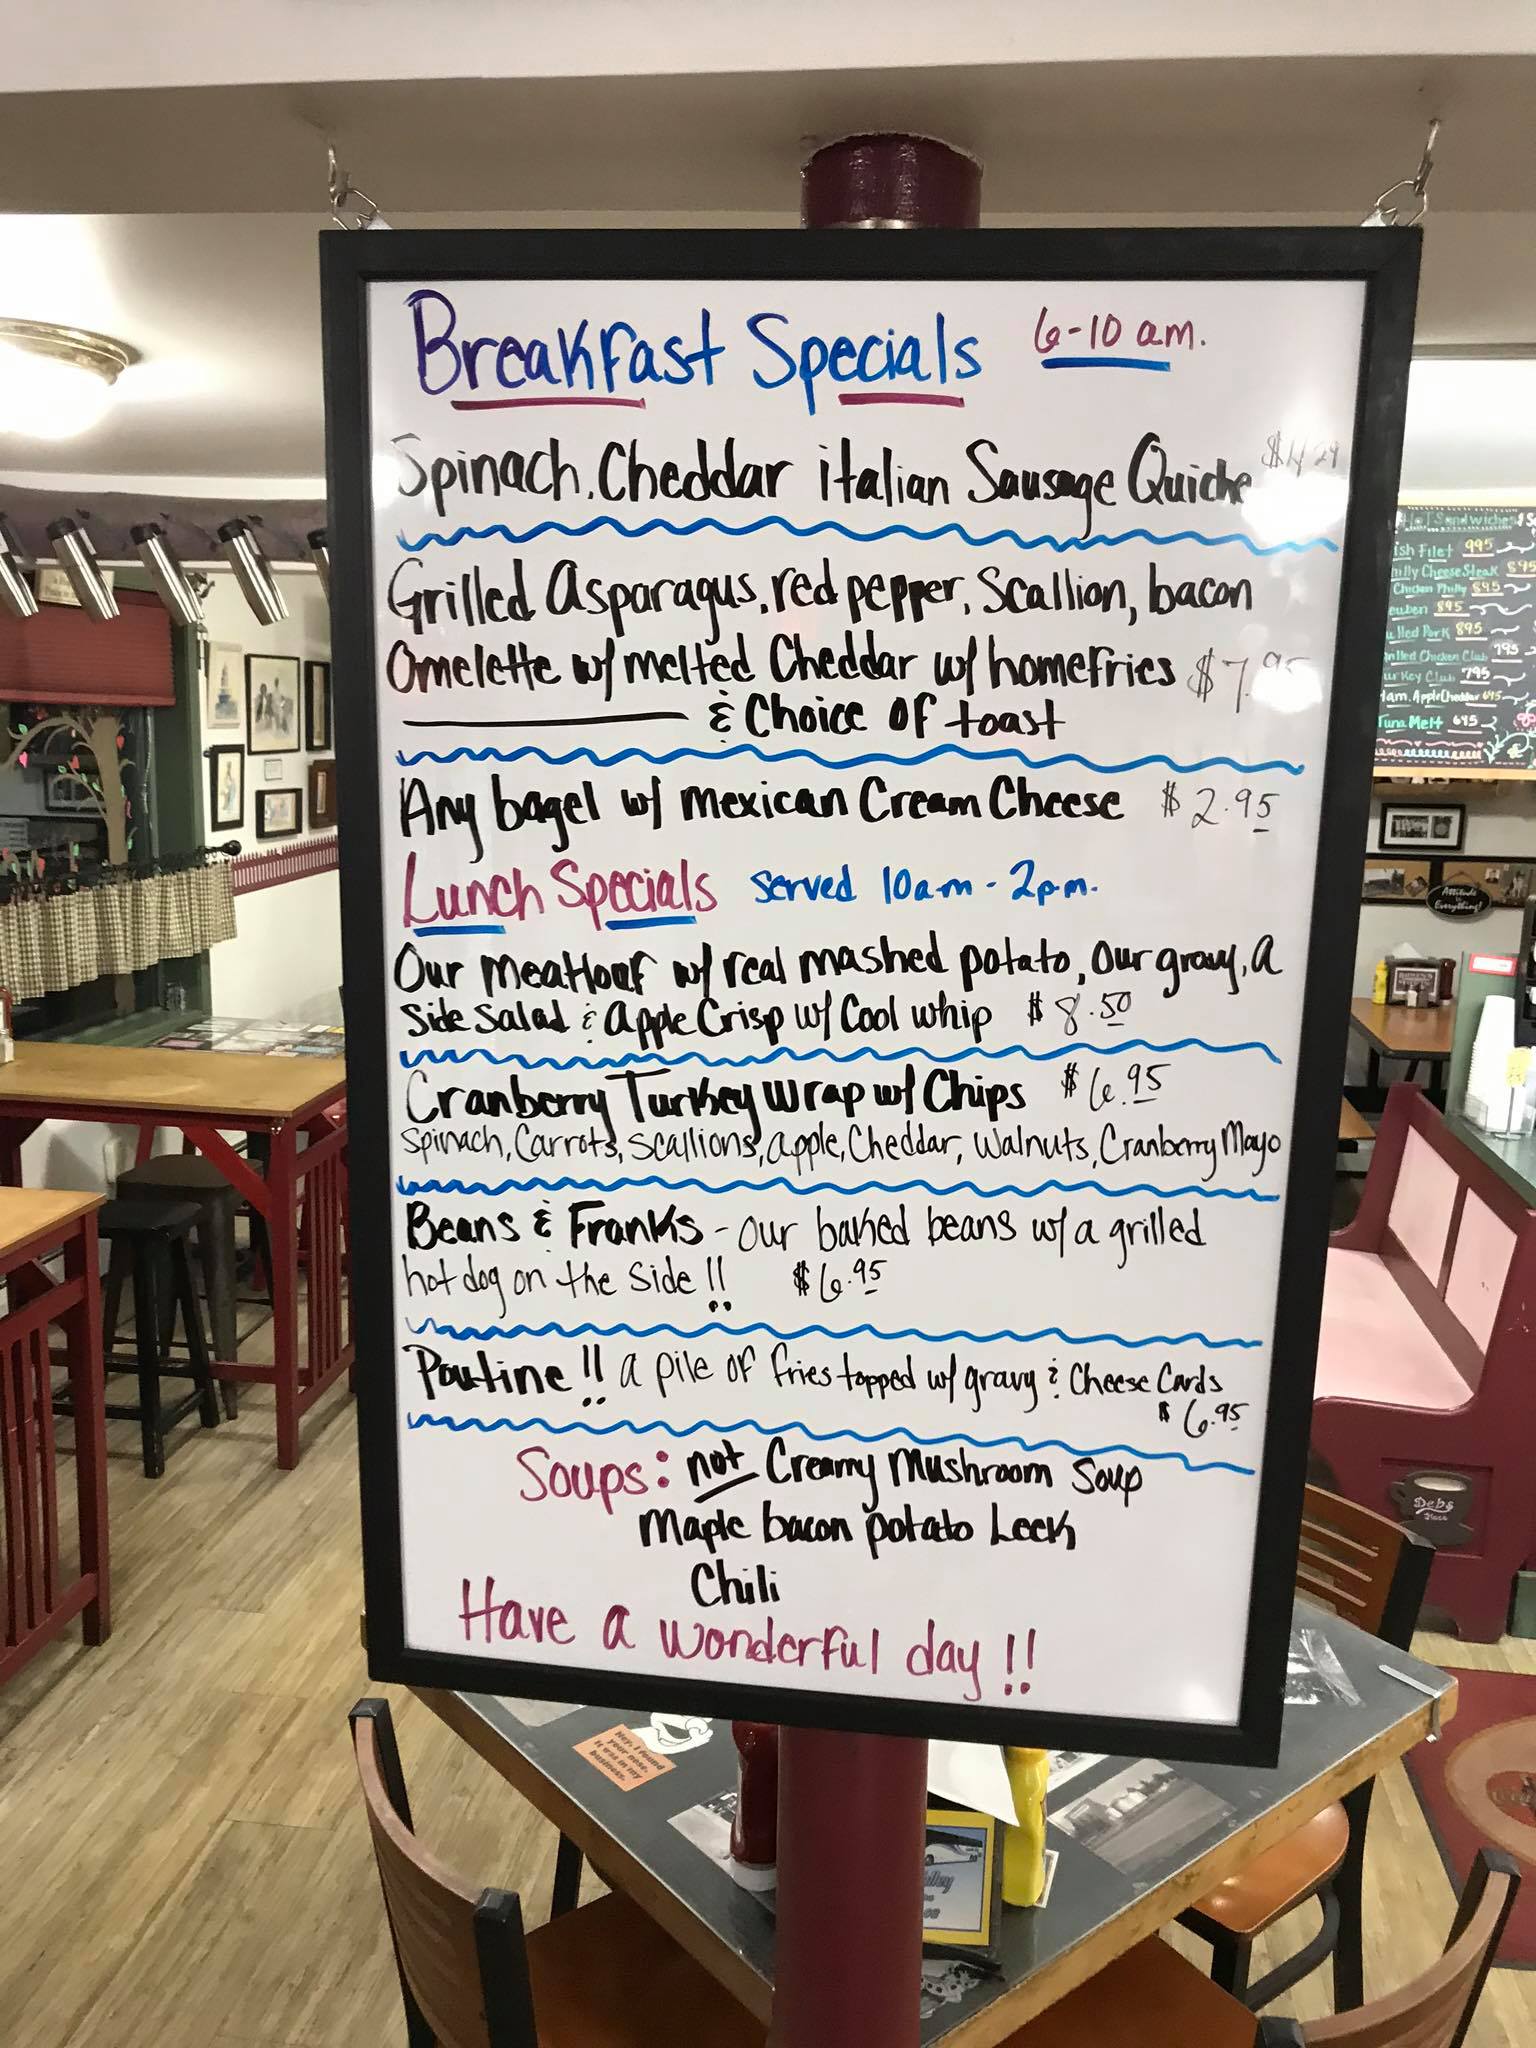 Breakfast Specials 6-10 am.
Spinach, Cheddar italian Sausage Quiche $4.29
Grilled Asparagus, red pepper, Scallion, bacon
Omelette w/ melted Cheddar w/ homefries $7.95
& Choice of toast
Any bagel w/ mexican Cream Cheese $2.95
Lunch Specials served 10am - 2pm.
Our meatloaf w/ real mashed potato, our gravy, a
side salad & apple Crisp w/ Cool whip $8.50
Cranberry Turkey wrap w/ Chips $6.95
Spinach, Carrots, scallions, apple, Cheddar, Walnuts, Cranberry Mayo
Beans & Franks - our baked beans w/ a grilled
hot dog on the side !! $6.95
Poutine !! a pile of fries topped w/ gravy & Cheese Cards
$6.95
Soups: not Creamy Mushroom Soup
Maple bacon potato Leek
Chili
Have a wonderful day !!
Hot Sandwiches
ish Filet 995
hilly Cheese Steak 895
Chicken Philly 895
euben 895
ulled Pork 895
rilled Chicken Club 795
urkey Club 795
Ham, Apple Cheddar 695
Tuna Melt 695
Attitude is Everything!
Debs Place
Hey, I found
your nose.
It was in my
business.